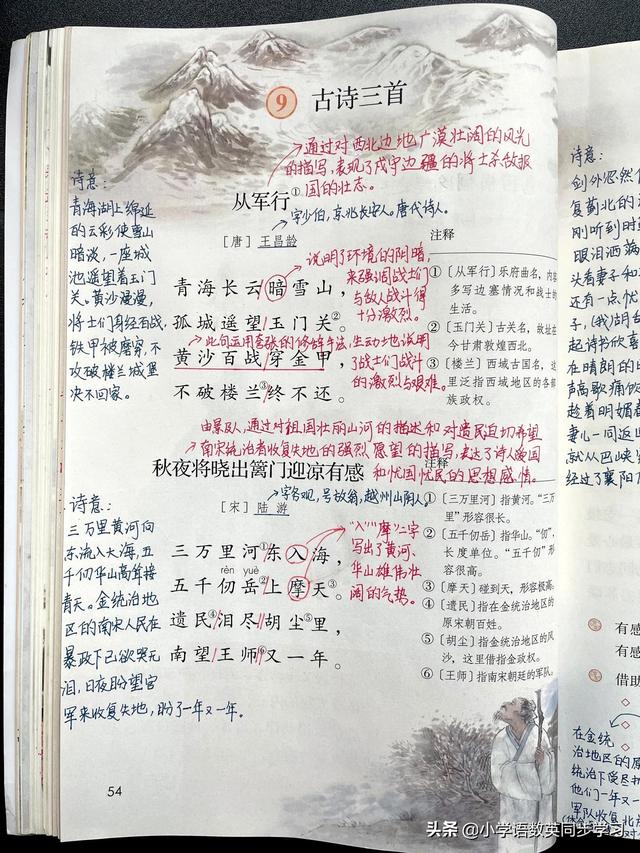 9 古诗三首
通过对西北边地广漠壮阔的风光
的描写,表现了戍守边疆的将士杀敌报
国的壮志。
从军行①
字少伯,京兆长安人。唐代诗人。
[唐] 王昌龄
青海长云暗雪山,
孤城遥望玉门关②。
黄沙百战穿金甲,
不破楼兰③终不还。
说明了环境的阴暗,
来强调战士们
与敌人战斗得
十分激烈。
此句运用夸张的修辞手法,生动地说明
了战士们战斗
的激烈与艰难。
诗意:
青海湖上绵延
的云彩使雪山
暗淡,一座城
池遥望着玉门
关。黄沙漫漫,
将士们身经百战,
铁甲被磨穿,不
攻破楼兰城堡
决不回家。
注释
①〔从军行〕乐府曲名,内容
多写边塞情况和战士的
生活。
②〔玉门关〕古关名,故址在
今甘肃敦煌西北。
③〔楼兰〕西域古国名,这
里泛指西域地区的各部
族政权。
由景及人,通过对祖国壮丽山河的描述和对遗民迫切希望
南宋统治者收复失地的强烈愿望的描写,表达了诗人爱国
和忧国忧民的思想感情。
秋夜将晓出篱门迎凉有感
字务观,号放翁,越州山阴人。
[宋] 陆游
三万里河①东入海,
rèn yuè
五千仞岳②上摩天③。
遗民④泪尽胡尘⑤里,
南望王师⑥又一年。
“入”“摩”二字
写出了黄河、
华山雄伟壮
阔的气势。
诗意:
三万里黄河向
东流入大海,五
千仞华山高耸接
青天。金统治地
区的南宋人民在
暴政下已欲哭无
泪,日夜盼望官
军来收复失地,盼了一年又一年。
注释
①〔三万里河〕指黄河。“三万
里”形容很长。
②〔五千仞岳〕指华山。“仞”,
长度单位。“五千仞”形
容很高。
③〔摩天〕碰到天,形容极高。
④〔遗民〕指在金统治地区的
原宋朝百姓。
⑤〔胡尘〕指金统治地区的风
沙,这里借指金政权。
⑥〔王师〕指南宋朝廷的军队。
54
诗意:
剑外忽然
复蓟北的
刚听到时
眼泪洒满
头看妻子和
还有一点忧
子,(我)
起诗书欣喜
在晴朗的
声高歌痛饮
趁着明媚春
妻儿一同返
就从巴峡
经过了襄阳
有感
有感
借助
在金统
治地区的原
统治下受尽
他们一年又一
军队收复北
头条 @小学语数英同步学习